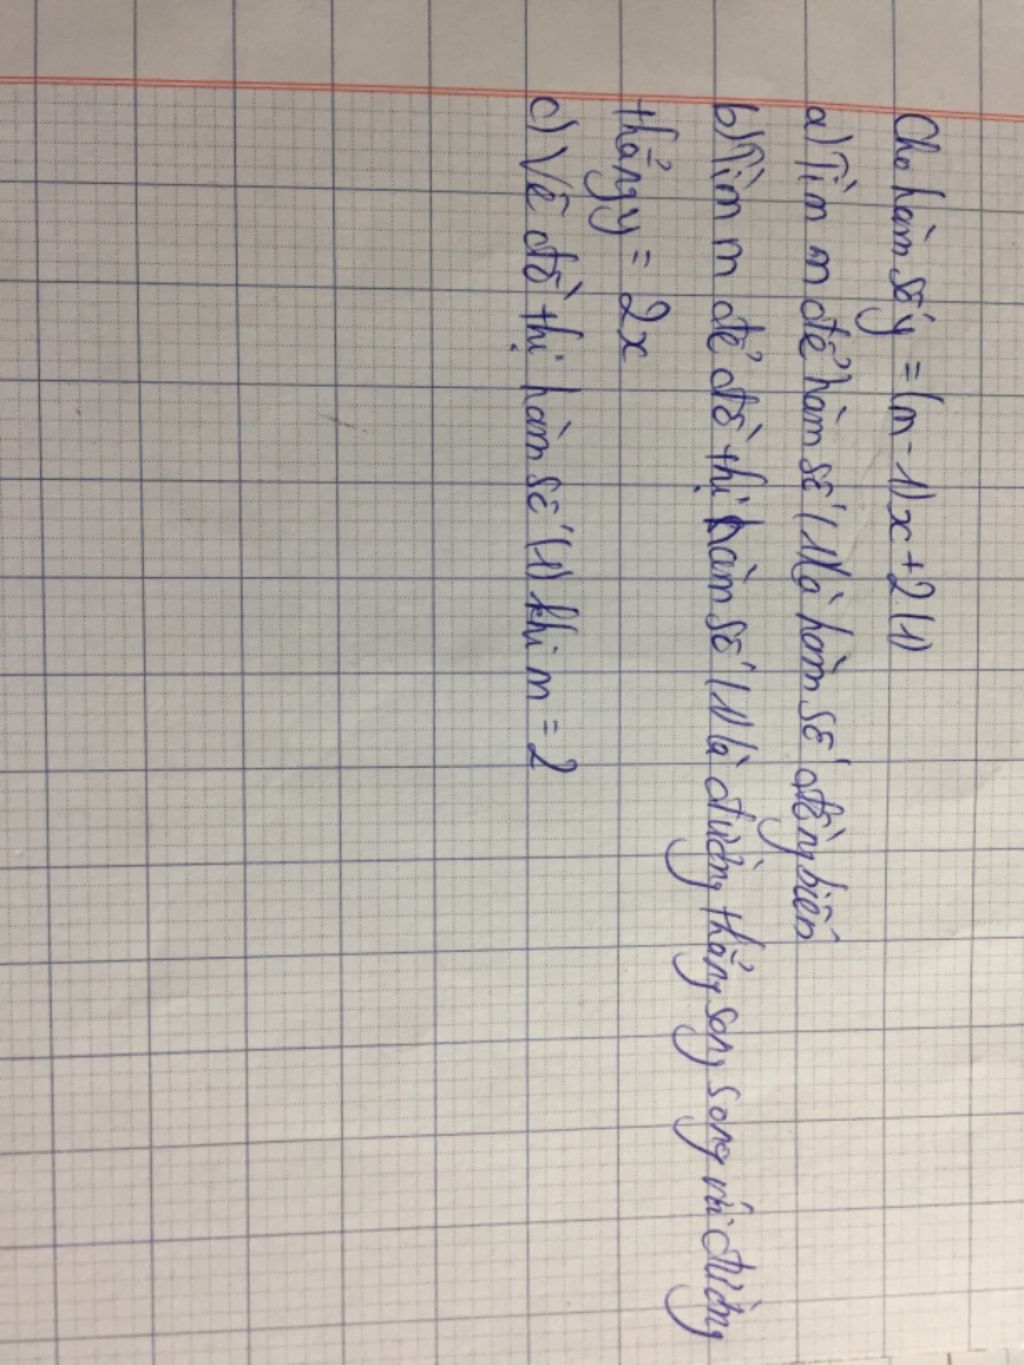 Cho hàm số y = (m - 1)x + 2 (1)
a) Tìm m để hàm số (1) là hàm số đồng biến
b) Tìm m để đồ thị hàm số (1) là đường thẳng song song với đường
thẳng y = 2x
c) Vẽ đồ thị hàm số (1) khi m = 2